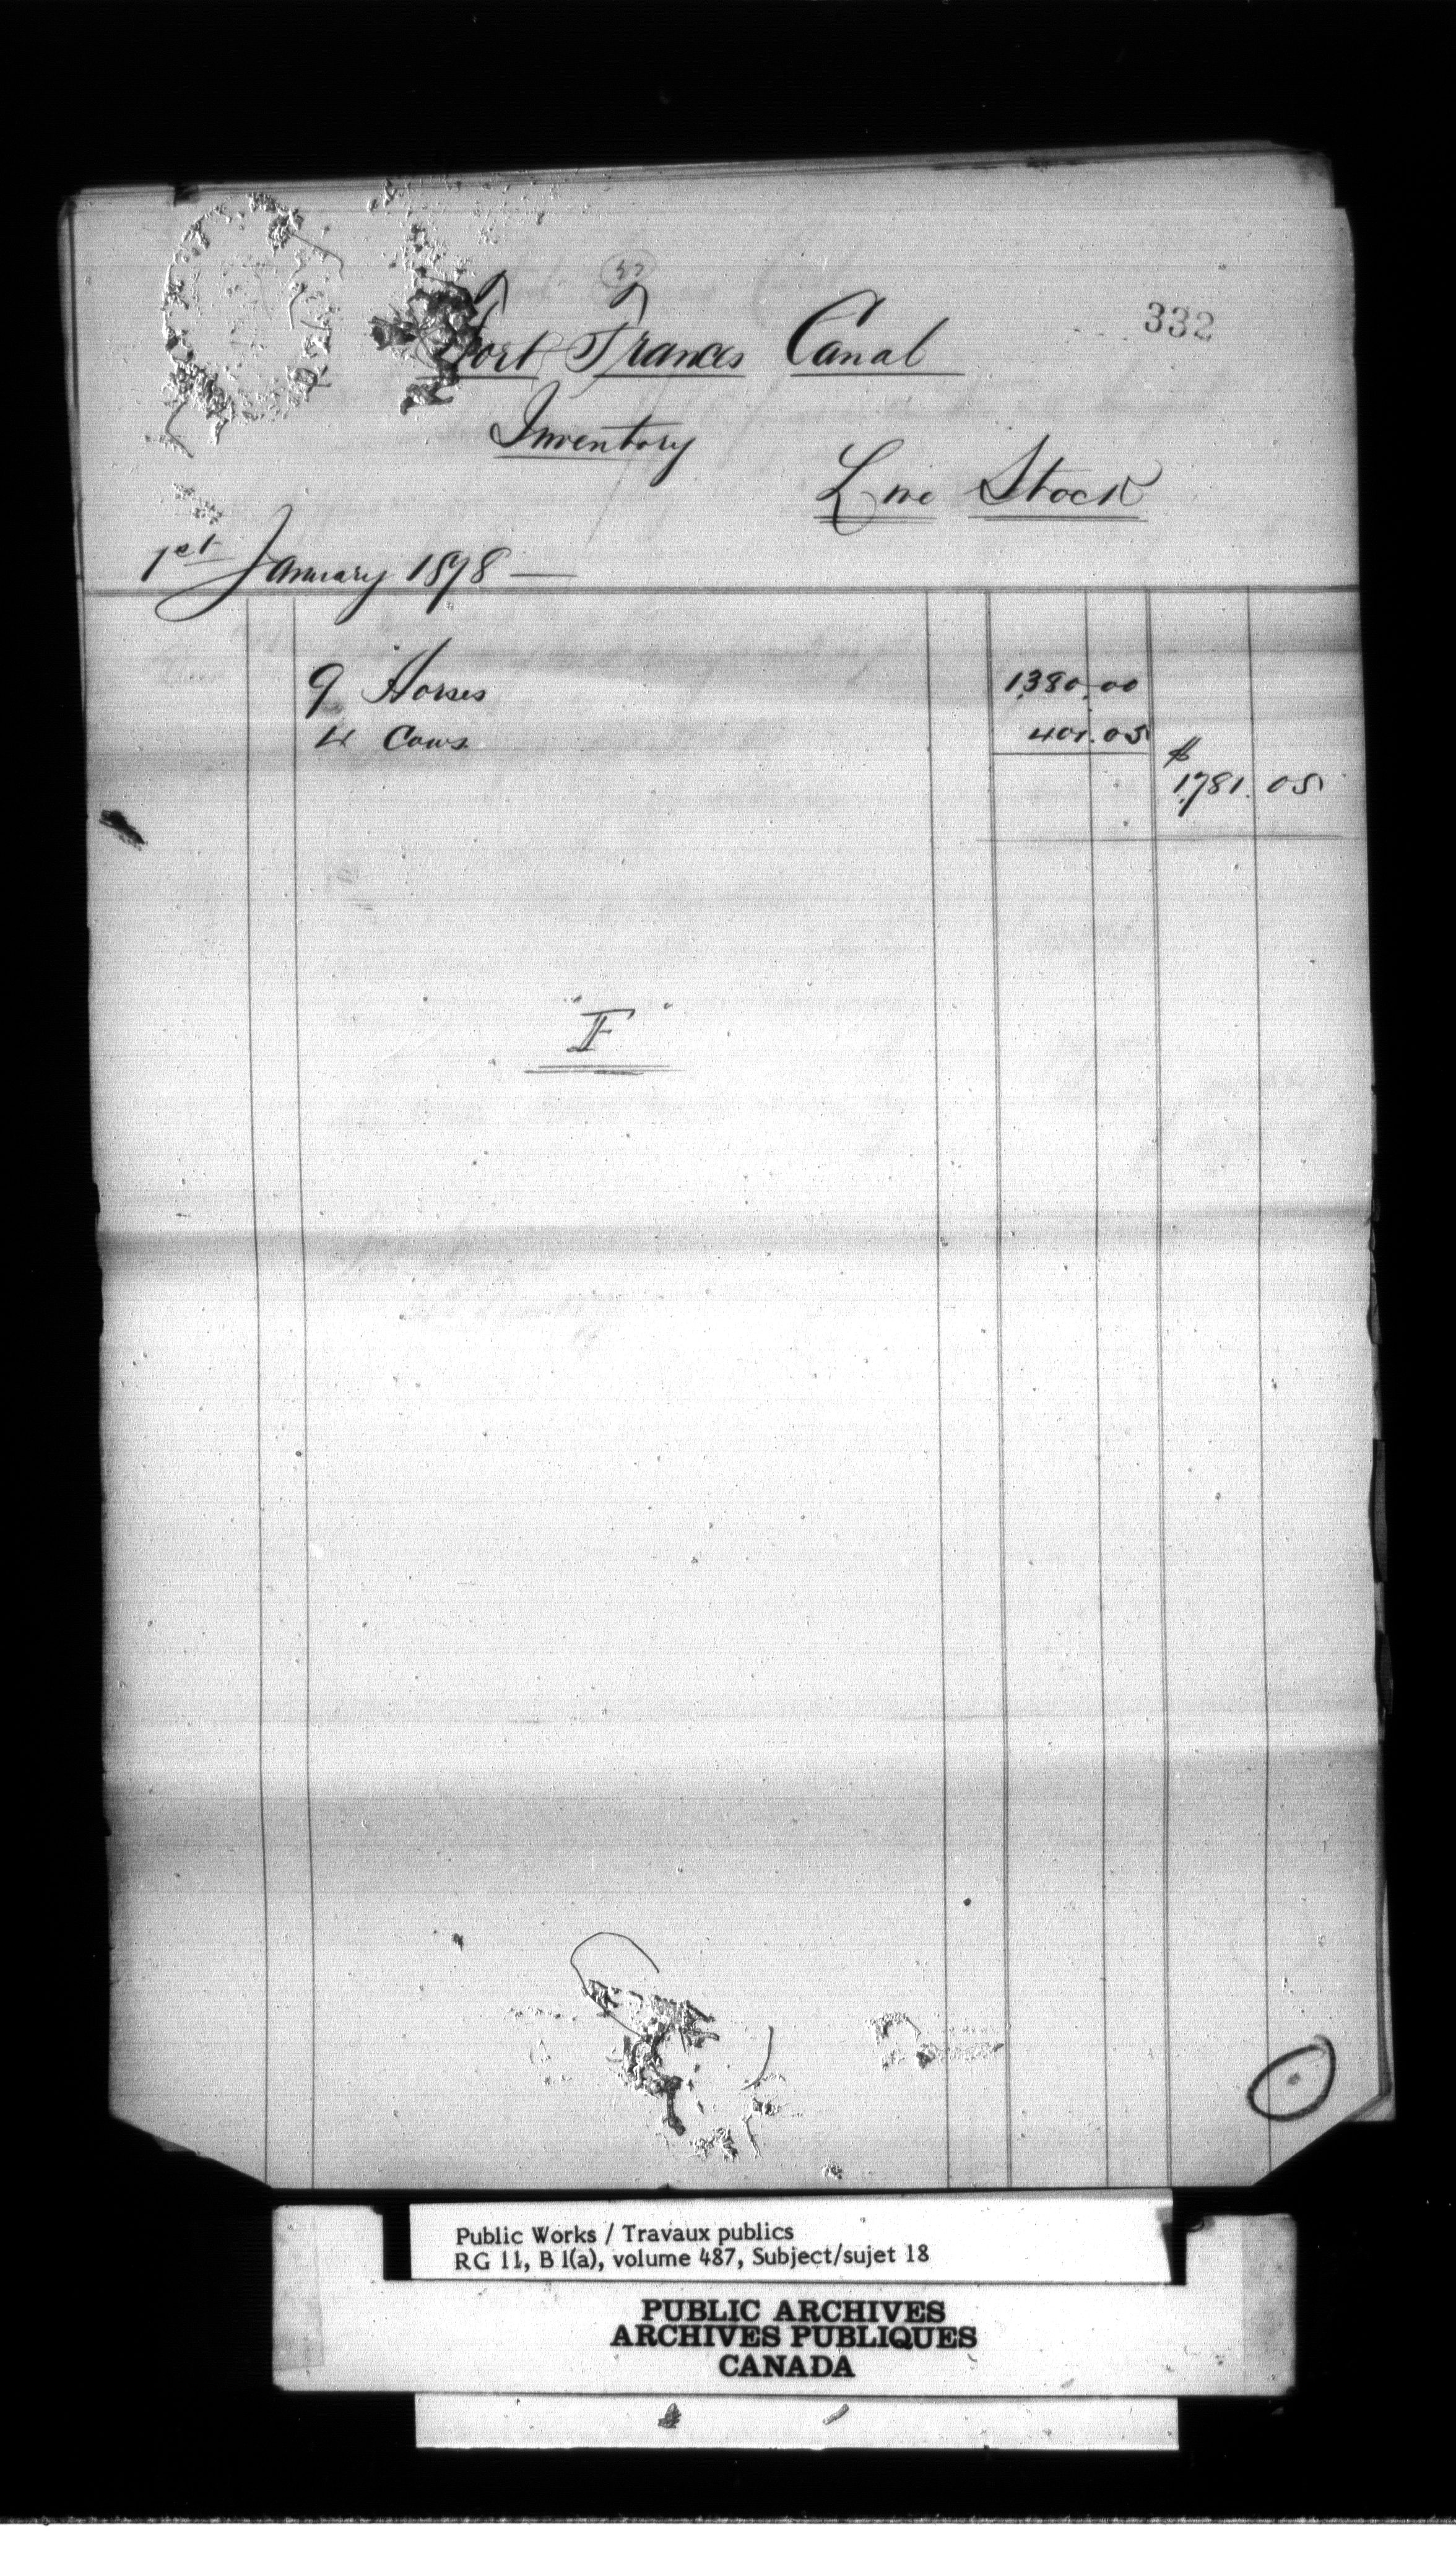 332
Fort Frances Canal
Inventory
Live Stock
1st January 1878 —
9 Horses 1380.00
4 Cows 401.05
$
1781.05
"F"
Public Works / Travaux publics
RG 11, B 1(a), volume 487, Subject/sujet 18
PUBLIC ARCHIVES
ARCHIVES PUBLIQUES
CANADA